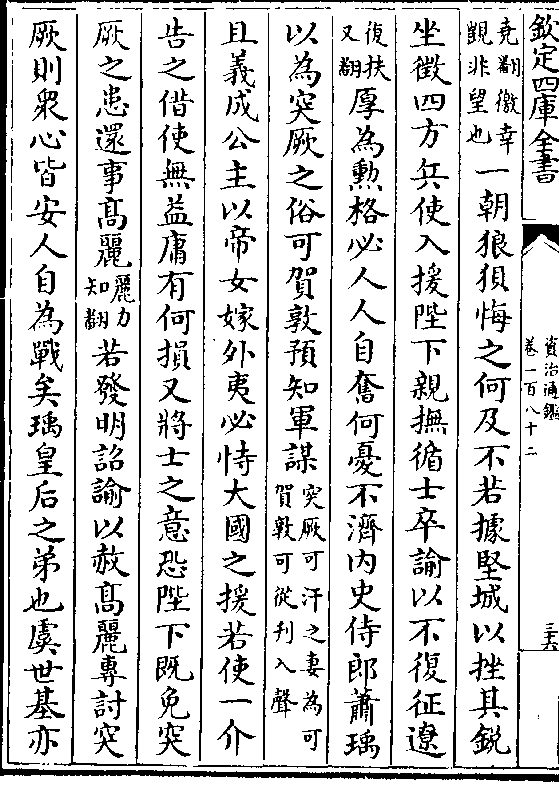 欽定四庫全書
資治通鑑
卷一百八十二
三六
堯翻徼幸
覬非望也
一朝狼狽悔之何及不若據堅城以挫其銳
坐徵四方兵使入援陛下親撫循士卒諭以不復征遼
復扶
又翻
厚為勲格必人人自奮何憂不濟内史侍郎蕭瑀
以為突厥之俗可賀敦預知軍謀
突厥可汗之妻為可
賀敦可從刋入聲
且義成公主以帝女嫁外夷必恃大國之援若使一介
告之借使無益庸有何損又將士之意恐陛下既免突
厥之患還事髙麗
麗力
知翻
若發明詔諭以赦髙麗專討突
厥則衆心皆安人自為戰矣瑀皇后之弟也虞世基亦